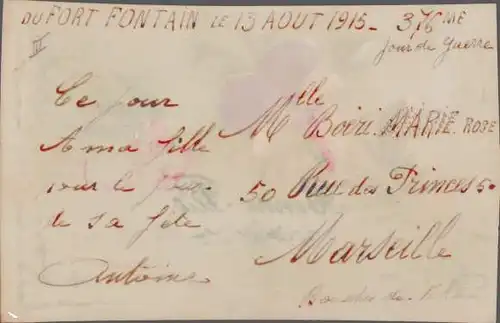 DU FORT FONTAIN LE 13 AOUT 1915 - 376ME
Jour de Guerre
II
Ce jour
A ma fille
pour le jour
de sa fête
Antoine
Mlle
Boëri MARIE ROSE
50 Rue des Princes 50
Marseille
Bouches de